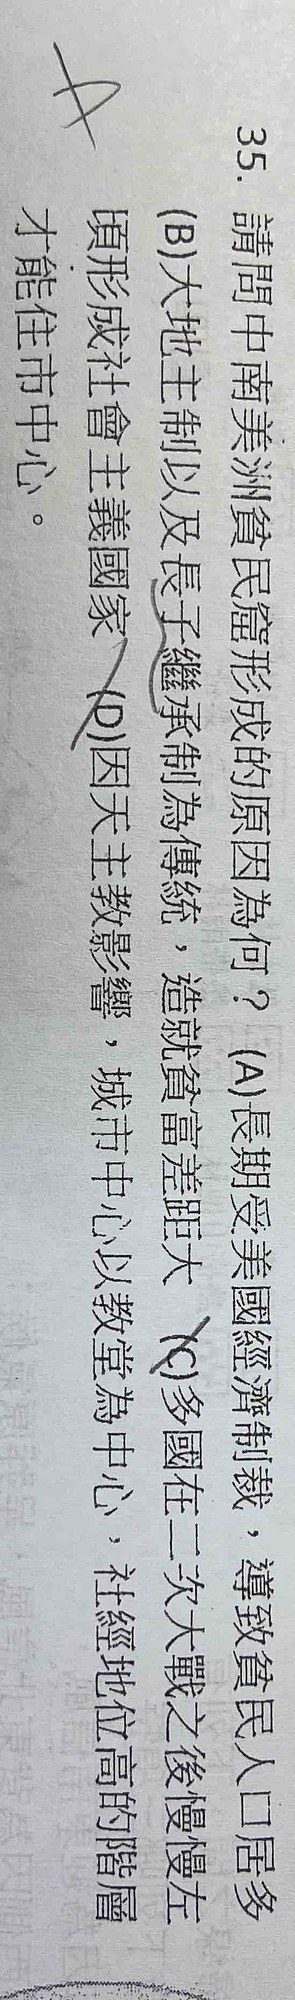 A
35. 請問中南美洲貧民窟形成的原因為何？ (A)長期受美國經濟制裁，導致貧民人口居多
(B)大地主制以及長子繼承制為傳統，造就貧富差距大 (C)多國在二次大戰之後慢慢左
頃形成社會主義國家 (D)因天主教影響，城市中心以教堂為中心，社經地位高的階層
才能住市中心。